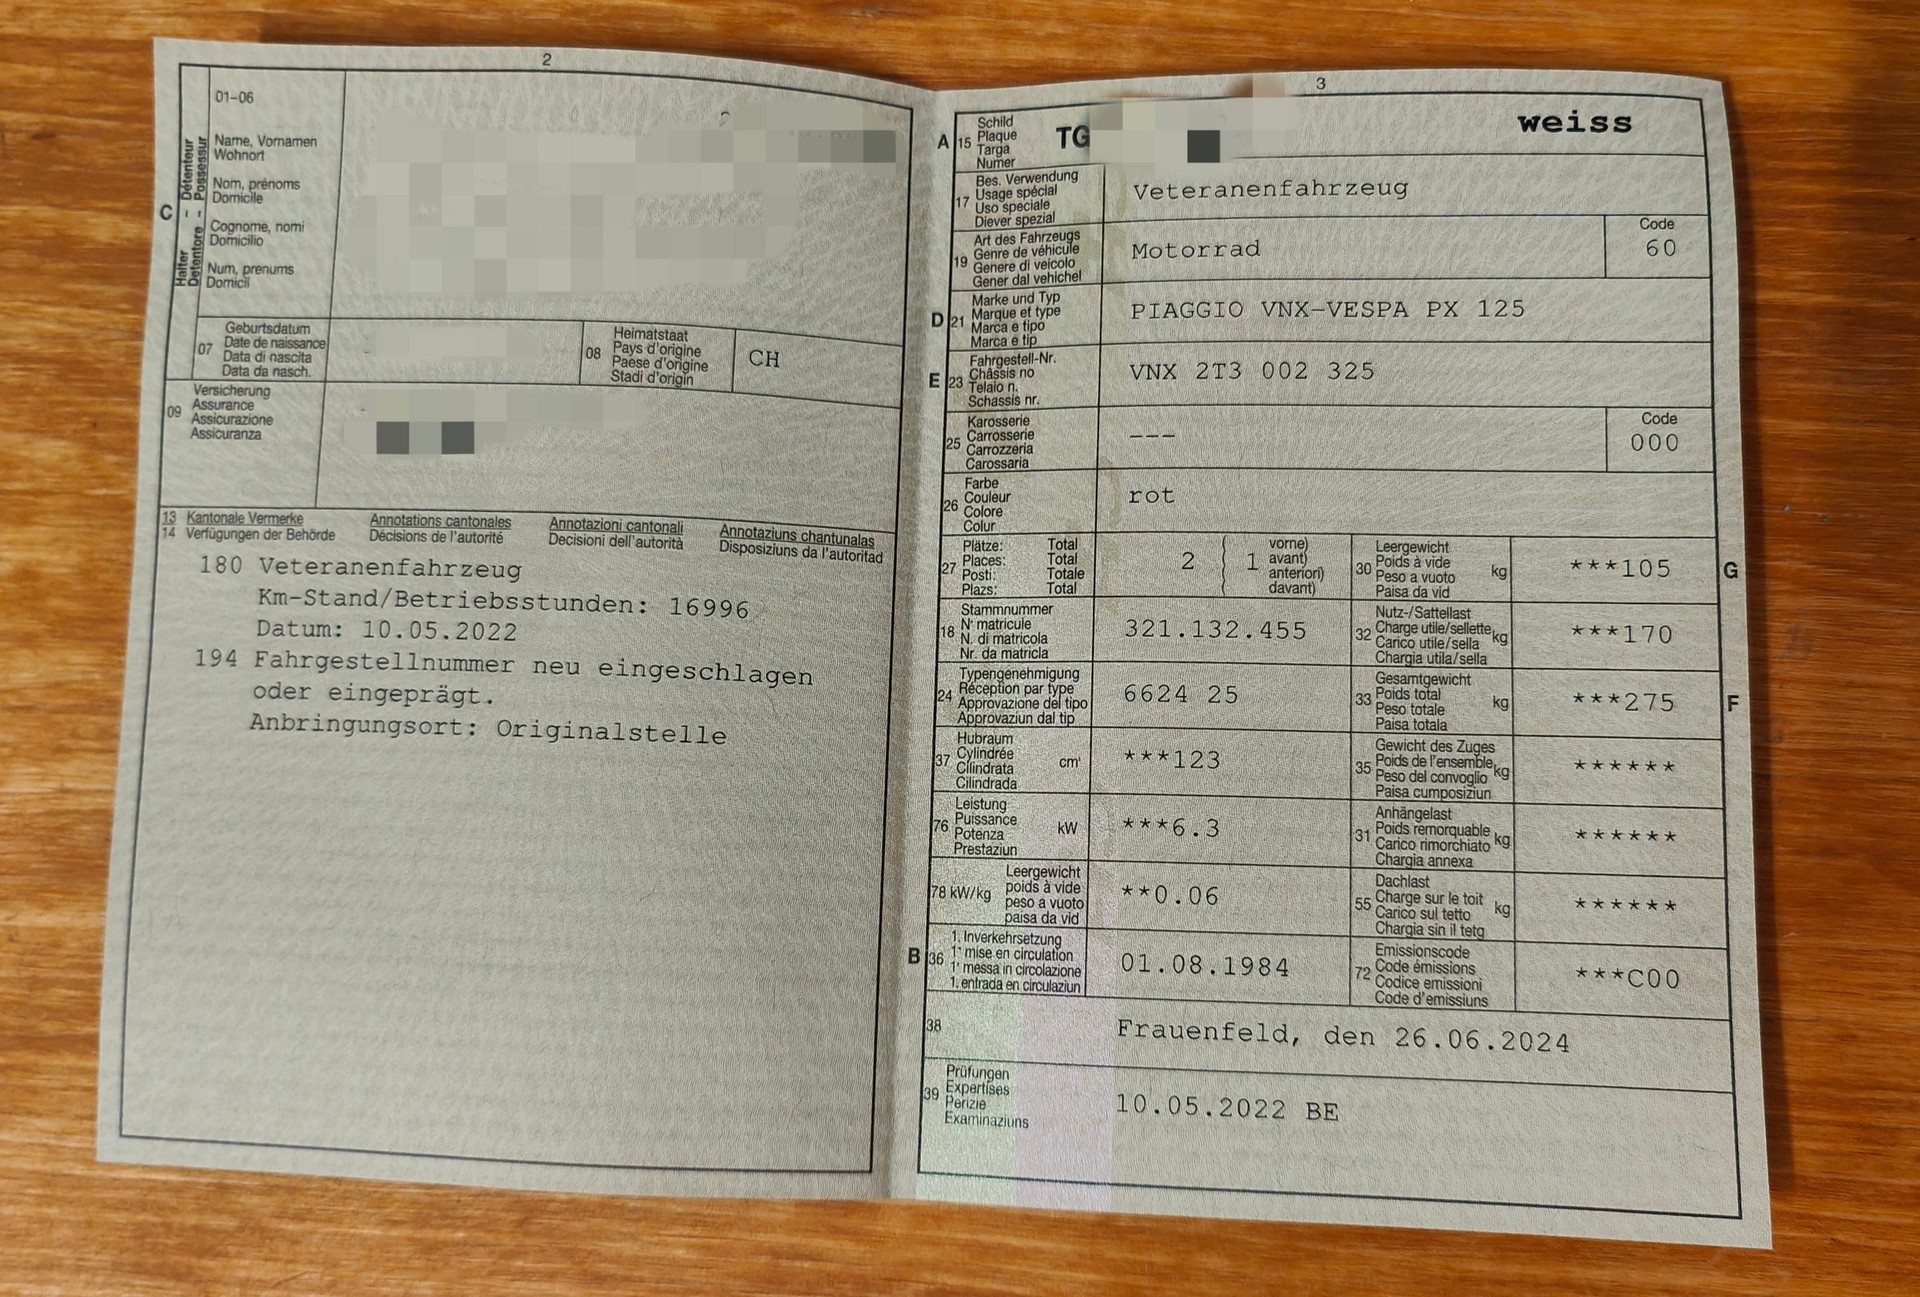 2
01-06
C
Halter - Détenteur
Detentore - Possessur
Name, Vornamen
Wohnort
Nom, prénoms
Domicile
Cognome, nomi
Domicilio
Num, prenums
Domicil
07
Geburtsdatum
Date de naissance
Data di nascita
Data da nasch.
08
Heimatstaat
Pays d'origine
Paese d'origine
Stadi d'origin
CH
09
Versicherung
Assurance
Assicurazione
Assicuranza
13 Kantonale Vermerke Annotations cantonales Annotazioni cantonali Annotaziuns chantunalas
14 Verfügungen der Behörde Décisions de l'autorité Decisioni dell'autorità Disposiziuns da l'autoritad
180 Veteranenfahrzeug
Km-Stand/Betriebsstunden: 16996
Datum: 10.05.2022
194 Fahrgestellnummer neu eingeschlagen
oder eingeprägt.
Anbringungsort: Originalstelle
3
A
15
Schild
Plaque
Targa
Numer
TG
weiss
17
Bes. Verwendung
Usage spécial
Uso speciale
Diever spezial
Veteranenfahrzeug
19
Art des Fahrzeugs
Genre de véhicule
Genere di veicolo
Gener dal vehichel
Motorrad
Code
60
D
21
Marke und Typ
Marque et type
Marca e tipo
Marca e tip
PIAGGIO VNX-VESPA PX 125
E
23
Fahrgestell-Nr.
Châssis no
Telaio n.
Schassis nr.
VNX 2T3 002 325
25
Karosserie
Carrosserie
Carrozzeria
Carossaria
---
Code
000
26
Farbe
Couleur
Colore
Colur
rot
27
Plätze: Total
Places: Total
Posti: Totale
Plazs: Total
2
1
vorne)
avant)
anteriori)
davant)
30
Leergewicht
Poids à vide
Peso a vuoto
Paisa da vid
kg
***105
G
18
Stammnummer
N° matricule
N. di matricola
Nr. da matricla
321.132.455
32
Nutz-/Sattellast
Charge utile/sellette
Carico utile/sella
Chargia utila/sella
kg
***170
24
Typengenehmigung
Réception par type
Approvazione del tipo
Approvaziun dal tip
6624 25
33
Gesamtgewicht
Poids total
Peso totale
Paisa totala
kg
***275
F
37
Hubraum
Cylindrée
Cilindrata
Cilindrada
cm³
***123
35
Gewicht des Zuges
Poids de l'ensemble
Peso del convoglio
Paisa cumposiziun
kg
******
76
Leistung
Puissance
Potenza
Prestaziun
kW
***6.3
31
Anhängelast
Poids remorquable
Carico rimorchiato
Chargia annexa
kg
******
78 kW/kg
Leergewicht
poids à vide
peso a vuoto
paisa da vid
**0.06
55
Dachlast
Charge sur le toit
Carico sul tetto
Chargia sin il tetg
kg
******
B
36
1. Inverkehrsetzung
1ʳᵉ mise en circulation
1ᵃ messa in circolazione
1. entrada en circulaziun
01.08.1984
72
Emissionscode
Code émissions
Codice emissioni
Code d'emissiuns
***C00
38
Frauenfeld, den 26.06.2024
39
Prüfungen
Expertises
Perizie
Examinaziuns
10.05.2022 BE